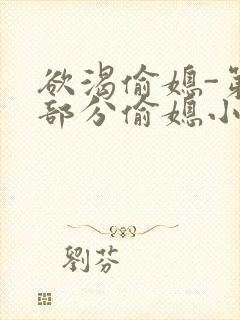 欲渴偷媳-第
部分偷媳小
劉芬